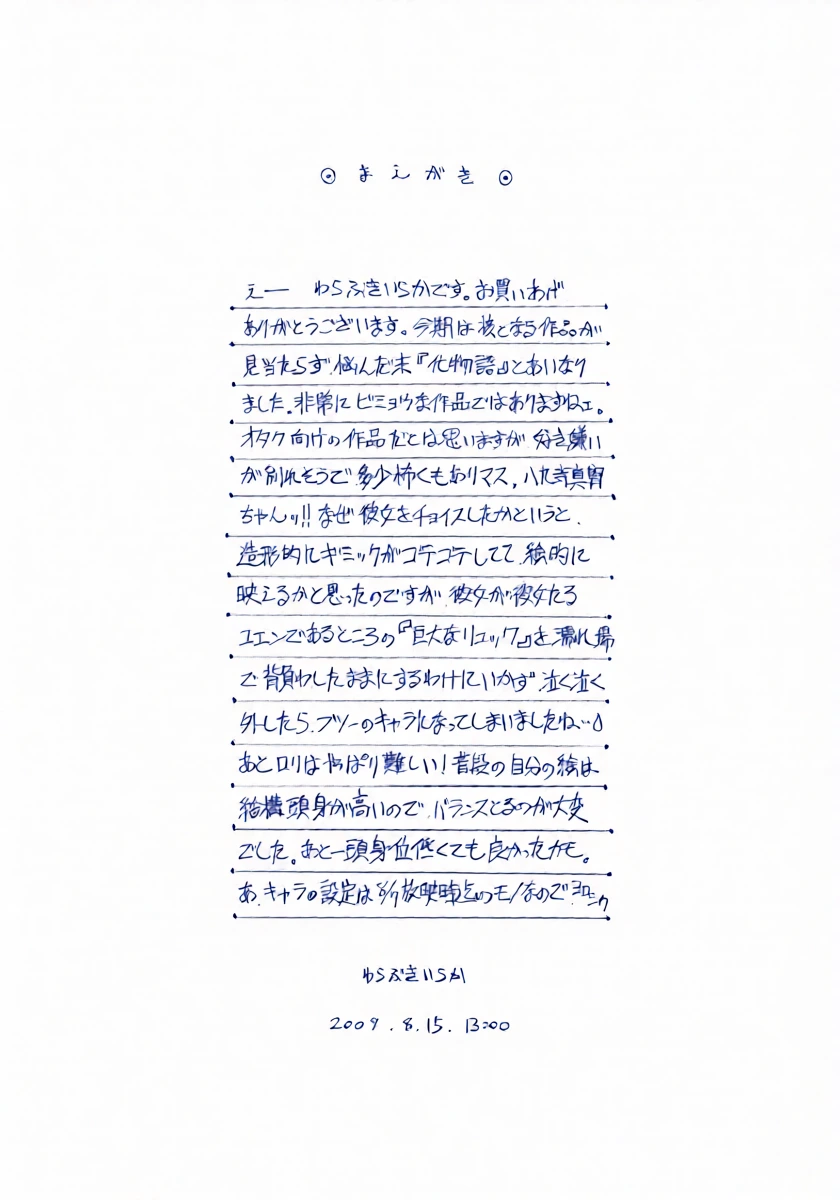 ◎ まえがき ◎
えー わらぶきいらかです。お買いあげ
ありがとうございます。今期は核となる作品が
見当たらず、悩んだ末『化物語』とあいなり
ました。非常にビミョウな作品ではありますねェ。
オタク向けの作品だとは思いますが 好き嫌い
が別れそうで 多少怖くもありマス, 八九寺真宵
ちゃんッ!! なぜ彼女をチョイスしたかというと、
造形的にギミックがゴテゴテしてて、絵的に
映えるかと思ったのですが、彼女が彼女たる
ユエンであるところの『巨大なリュック』を濡れ場
で背負わしたままにするわけにいかず 泣く泣く
外したら、フツーのキャラになってしまいましたね…
あとロリはやっぱり難しい! 普段の自分の絵は
結構頭身が高いので、バランスとるのが大変
でした。あと一頭身位低くても良かったカモ。
あ、キャラの設定は 放映時点のモノなので ヨロシク
わらぶきいらか
2009.8.15. 13:00